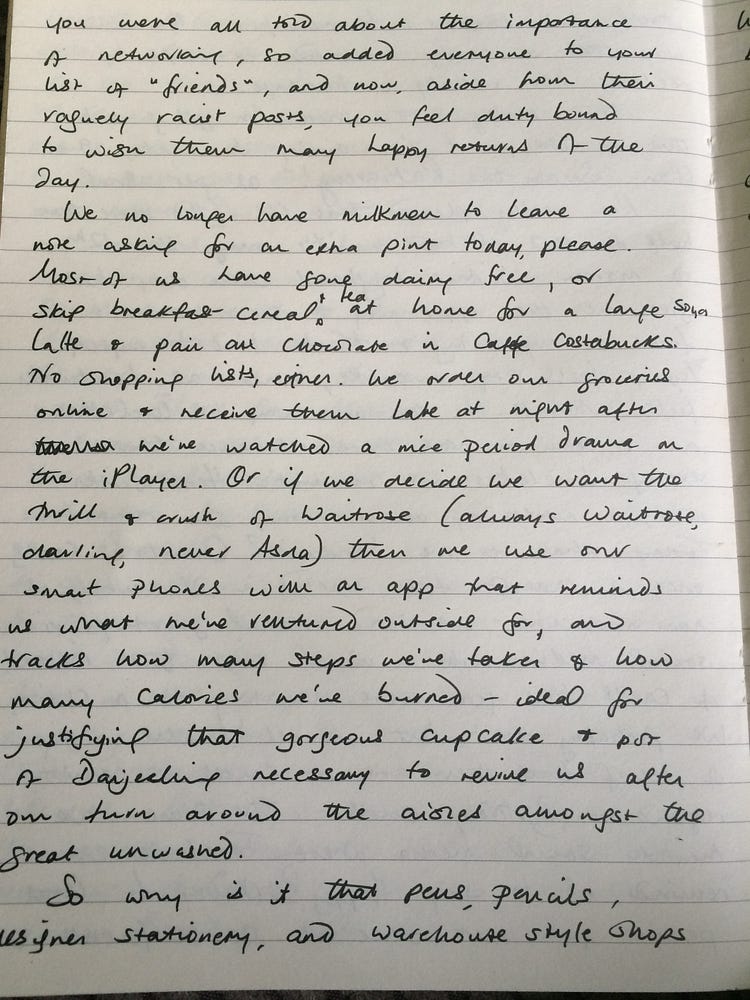 you were all told about the importance
of networking, so added everyone to your
list of "friends", and now, aside from their
vaguely racist posts, you feel duty bound
to wish them many happy returns of the
day.
We no longer have milkmen to leave a
note asking for an extra pint today, please.
Most of us have gone dairy free, or
skip breakfast cereal & tea at home for a large soya
latte & pain au chocolate in Caffe Costabucks.
No shopping lists, either. We order our groceries
online & receive them late at night after
we've watched a nice period drama on
the iPlayer. Or if we decide we want the
thrill & crush of Waitrose (always Waitrose,
darling, never Asda) then we use our
smart phones with an app that reminds
us what we've ventured outside for, and
tracks how many steps we've taken & how
many calories we've burned - ideal for
justifying that gorgeous cupcake & pot
of Darjeeling necessary to revive us after
our turn around the aisles amongst the
great unwashed.
So why is it that pens, pencils,
designer stationery, and warehouse style shops